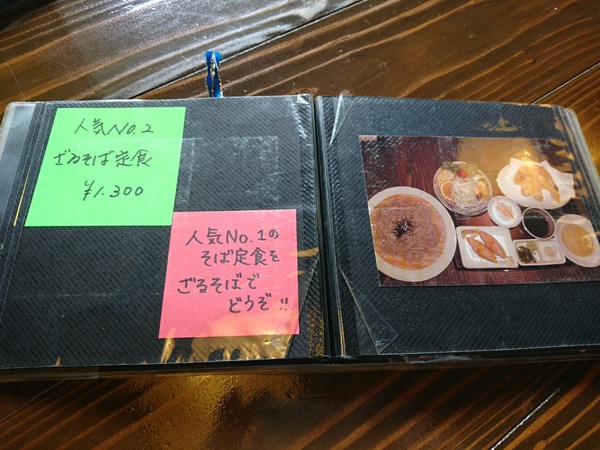 人気No.2
ざるそば定食
¥1.300
人気No.1の
そば定食を
ざるそばで
どうぞ!!